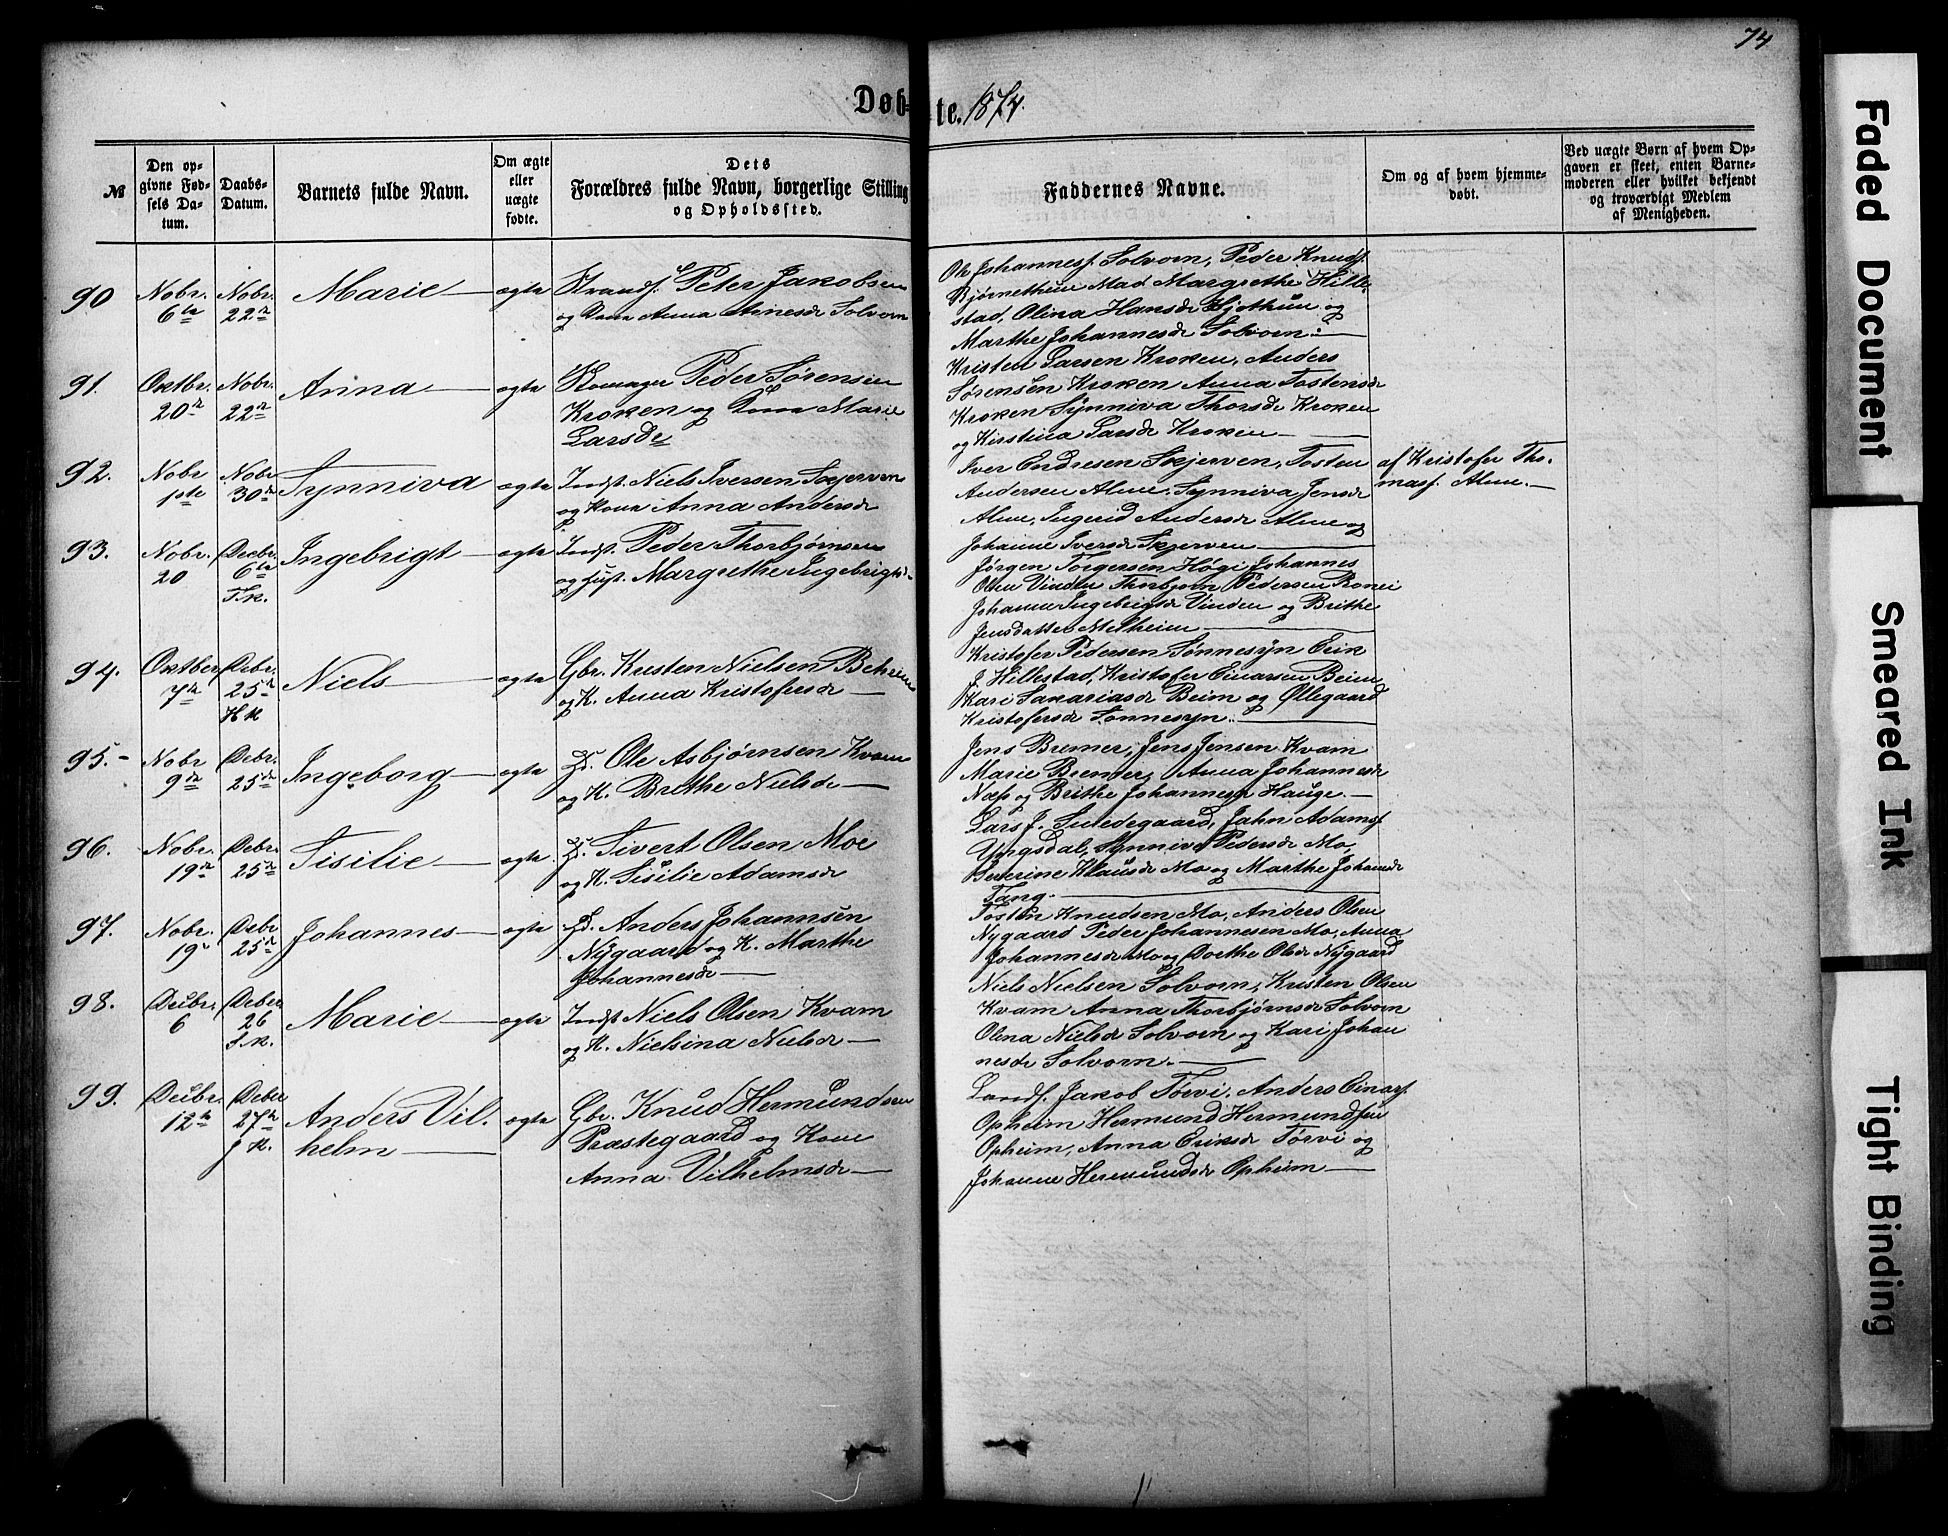 74
Døb-te. 1874.
№
Den op-
givne Fød-
sels Da-
tum.
Daabs-
Datum.
Barnets fulde Navn.
Om ægte
eller
uægte
fødte.
Dets
Forældres fulde Navn, borgerlige Stilling
og Opholdssted.
Faddernes Navne.
Om og af hvem hjemme-
døbt.
Ved uægte Børn af hvem Op-
gaven er skeet, enten Barne-
moderen eller hvilket bekjendt
og troværdigt Medlem
af Menigheden.
90 Nobr. 6te Nobr. 22n Marie ægte
Strands. Peter Jakobsen
og Kone Anna Arnesdr Solvorn
Ole Johanness. Solvorn, Peder Knuds.
Mad Margrethe Hille-
stad, Olina Hansdr og
Marthe Johannesdr Solvorn.
91. Oktbr. 20n Nobr. 22n Anna ægte
Skomager Peder Sørensen
Kroken og Kone Marie
Larsdr
Kristen Larsen Kroken, Anders
Sørensen Kroken Anna Tostensdr
Kroken Synniva Thorsdr Kroken
og Kirstina Larsdr Kroken
92. Nobr 1ste Nobr 30de Synniva ægte
Indst. Niels Iversen Skjerven
og Kone Anna Andersdr
Iver Endresen Skjerven, Tosten
Andersen Alme, Synniva Jensdr
Alme, Ingerid Andersdr Alme og
Johanne Iversdr Skjerven
af Kristofer Tho-
mass. Alme.
93. Nobr. 20 Decbr 6te S.K. Ingebrigt ægte
Indst. Peder Thorbjørnsen
og Hust. Margrethe Ingebrigtsd.
Jørgen Torgersen Høgi Johannes
Olsen Vinden Thorbjørn Pedersen Ronei
Johanne Ingebrigtsdr Vinden og Brithe
Jensdatter Melheim
94. Oktber 7de Debr. 25de H K Niels ægte
Gbr. Kristen Nielsen
og K. Anna Kristofersdr
Kristofer Pedersen Sønnesyn Erik
J. Hillestad, Kristofer Einarsen Beim
Kari Sakariasdr Beim og Øllegaard
Kristofersdr Sønnesyn.
95. Nobr 9de Debr. 25de Ingeborg ægte
Ole Asbjørnsen Kvam
og K. Brithe Nielsdr
Jens Bremer, Jens Jensen Kvam
Marie Bremer, Anna Johannesdr
Næss og Brithe Johannesdr Hauge.
96. Nobr. 19de Debr. 25de Sisilie ægte.
Sivert Olsen Moe
og K. Sisilie Adamsdr
Lars J. Jahn Adams.
Yngsdal, Synniva Pedersdr Mo,
Severine Klausdr Mo og Marthe Johansdr
Tang.
97. Nobr. 19 Debr 25de Johannes ægte
Anders Johannsen
Nygaard og K. Marthe
Johannesdr
Tosten Knudsen Mo, Anders Olsen
Nygaard Peder Johannesen Mo, Anna
Johannesdr Mo og Dorthe Olsdr Nygaard
98. Decbr. 6 Deber 26 S.K. Marie ægte
Indst Niels Olsen Kvam
og K. Nielsina Nielsdr
Niels Nielsen Solvorn, Kristen Olsen
Kvam Anna Thorbjørnsdr Solvorn
Olena Nielsdr Solvorn og Kari Johan
nesdr Solvorn.
99. Decbr. 12te Deber 27de J K. Anders Vil-
helm ægte
Gbr. Knud Hermundsen
Præstegaard og Kone
Anna Vilhelmsdr
Lands. Jakob Tørvi, Anders Einars.
Opheim Hermund Hermundsen
Opheim, Anna Eriksdr Tørvi og
Johanne Hermundsdr Opheim
Faded Document
Smeared Ink
Tight Binding